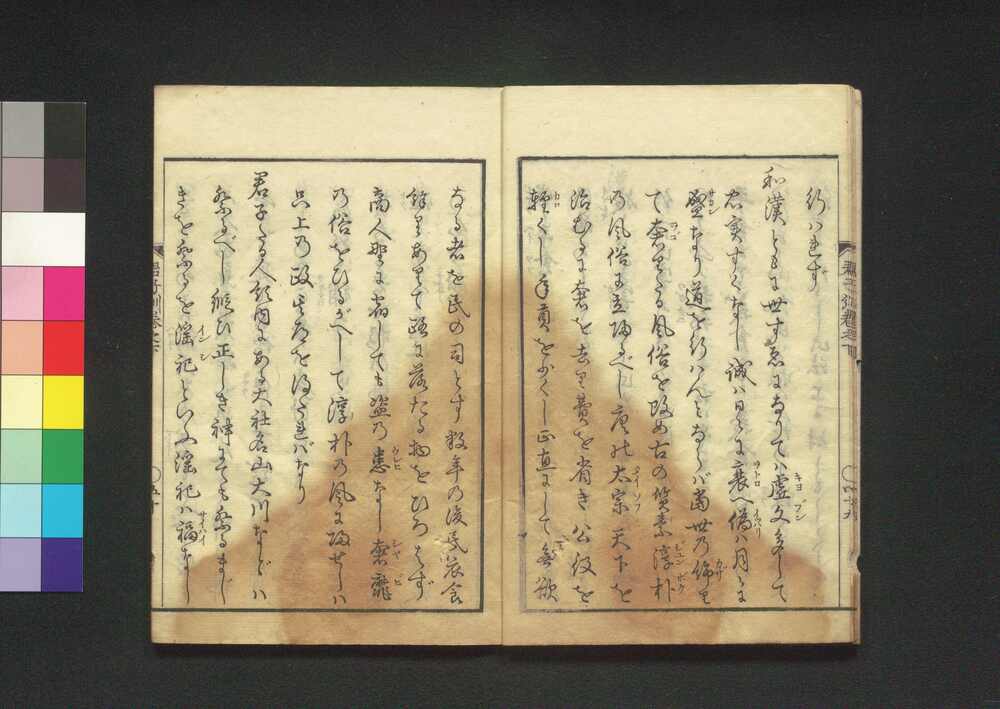 行ハれず
和漢ともに世すゑになりてハ虚文多して
右実すくなし誠ハ日々に衰へ偽ハ月々に
盛なり道を行ハんとならバ当世乃飾里
て奢せる風俗を改め古の質素淳朴
乃風俗に立帰べし唐乃太宗天下を
治むるに奢を去里費を省き公役を
軽くし年貢を少くし正直にして無欲
なる者を民の司とす数年の後民衣食
餘里ありて路に落たる物をひろハず
商人野に宿しても盗乃患なし奢靡
乃俗をひるがへして淳朴の風に帰せしハ
只上乃政其道を得たれバなり
君子たる人領内にある大社名山大川などハ
祭るべし縦ひ正しき神にても祭るまじ
きを祭るを淫祀といふ淫祀ハ福なし